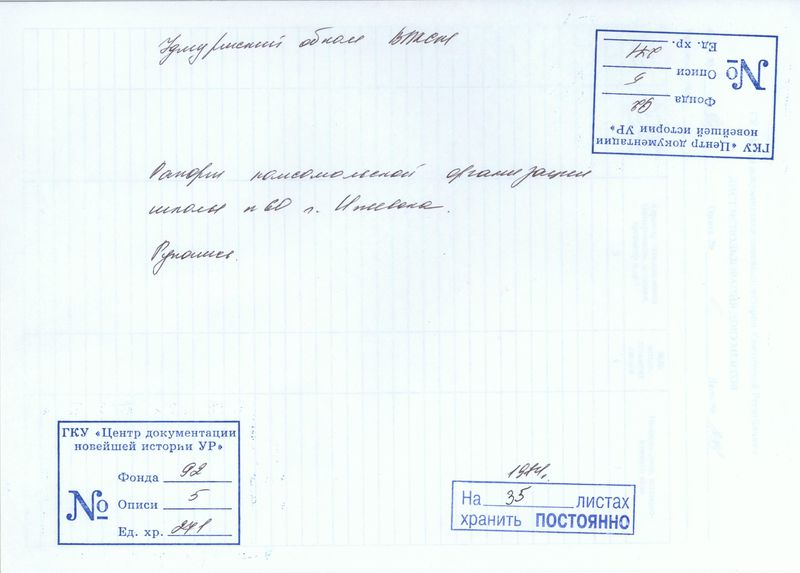 Удмуртский обком ВЛКСМ
ГКУ «Центр документации
новейшей истории УР»
Фонда 92
№ Описи 5
Ед. хр. 241
Рапорт комсомольской организации
школы № 60 г. Ижевска.
Рукопись.
ГКУ «Центр документации
новейшей истории УР»
Фонда 92
№ Описи 5
Ед. хр. 241
На 35 листах
хранить ПОСТОЯННО